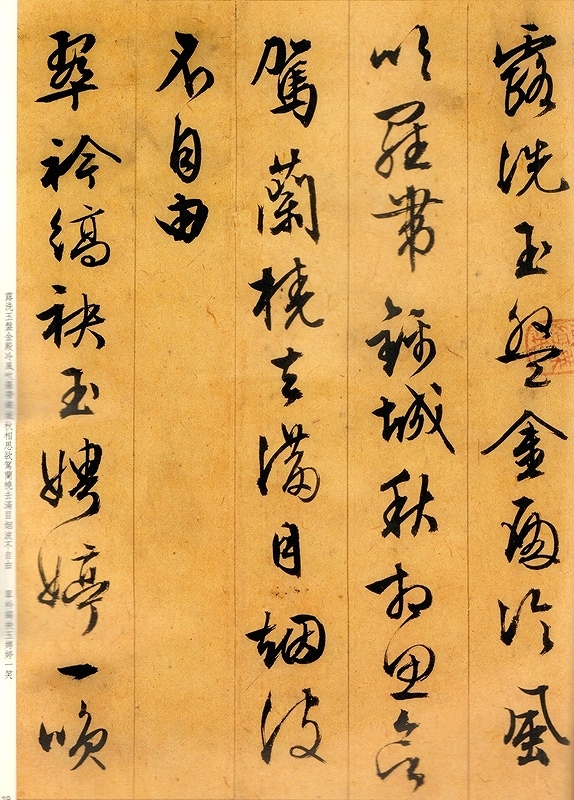 露洗玉盤金殿冷風
吹羅帶錦城秋相思欲
駕蘭橈去滿目烟波
不自由
翠袊縞袂玉娉婷一咲
露洗玉盤金殿冷風吹羅帶錦城秋相思欲駕蘭橈去滿目烟波不自由　翠袊縞袂玉娉婷一笑